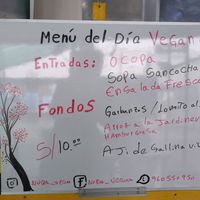 Menú del Día Vegan
Entradas: Ocopa
Sopa Sancocha
Ensalada Fresc
Fondos Garbanzos / Lomito al
Arroz a la Jardiner
Hamburguesa
S/10.00 Aji de Gallina